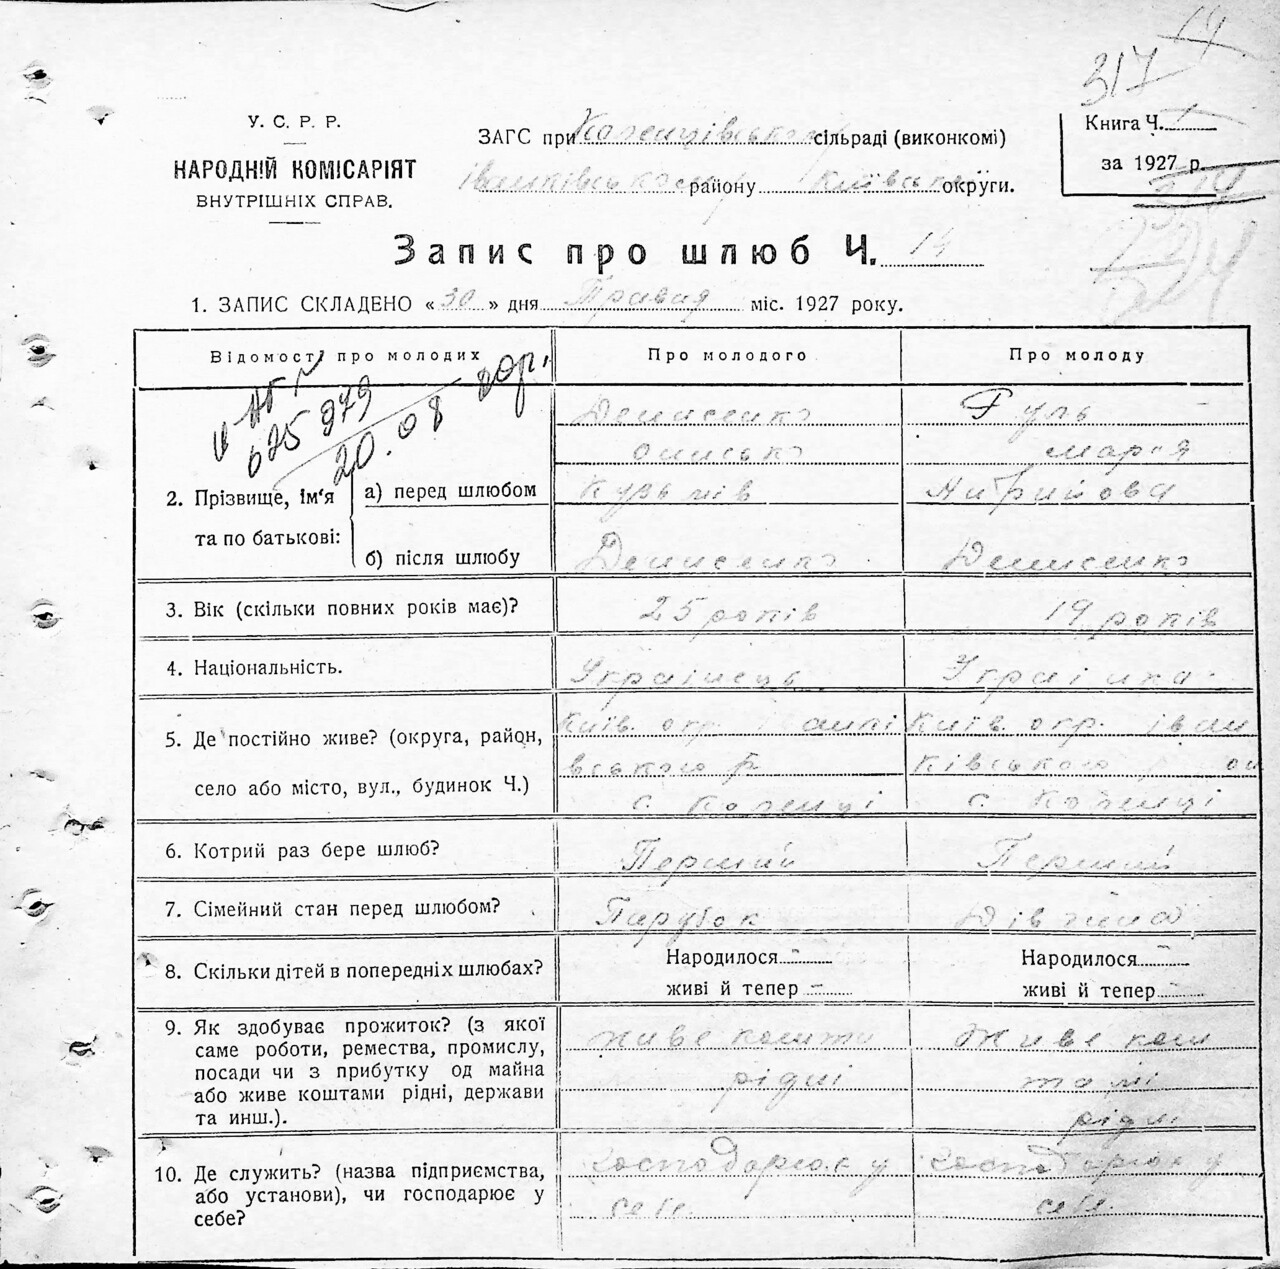 14
317
У. С. Р. Р.
НАРОДНІЙ КОМІСАРІЯТ
ВНУТРІШНІХ СПРАВ.
ЗАГС при Коленцівському сільраді (виконкомі)
іванківського району Київської округи.
Книга Ч.
за 1927 р.
Запис про шлюб Ч. 14
1. ЗАПИС СКЛАДЕНО « 30 » дня Травня міс. 1927 року.
Відомості про молодих
Про молодого
Про молоду
625979
20.08
2. Прізвище, ім'я та по батькові:
а) перед шлюбом
Денисенко
Кузьмів
Гуль
Мария
б) після шлюбу
Денисенко
Денисенко
3. Вік (скільки повних років має)?
25 років
19 років
4. Національність.
Українець
Українка
5. Де постійно живе? (округа, район,
село або місто, вул., будинок Ч.)
Київ. окр. іванкі
вського р
с. Коленці
Київ. окр. іван
ківського
с. Коленці
6. Котрий раз бере шлюб?
Перший
Перший
7. Сімейний стан перед шлюбом?
Парубок
Дівчина
8. Скільки дітей в попередніх шлюбах?
Народилося -
живі й тепер -
Народилося -
живі й тепер -
9. Як здобуває прожиток? (з якої
саме роботи, ремества, промислу,
посади чи з прибутку од майна
або живе коштами рідні, держави
та инш.).
живе кошти
рідні
Живе кош
тамі
рідні
10. Де служить? (назва підприємства,
або установи), чи господарює у
себе?
Господарює у
себе
Господарює у
себе